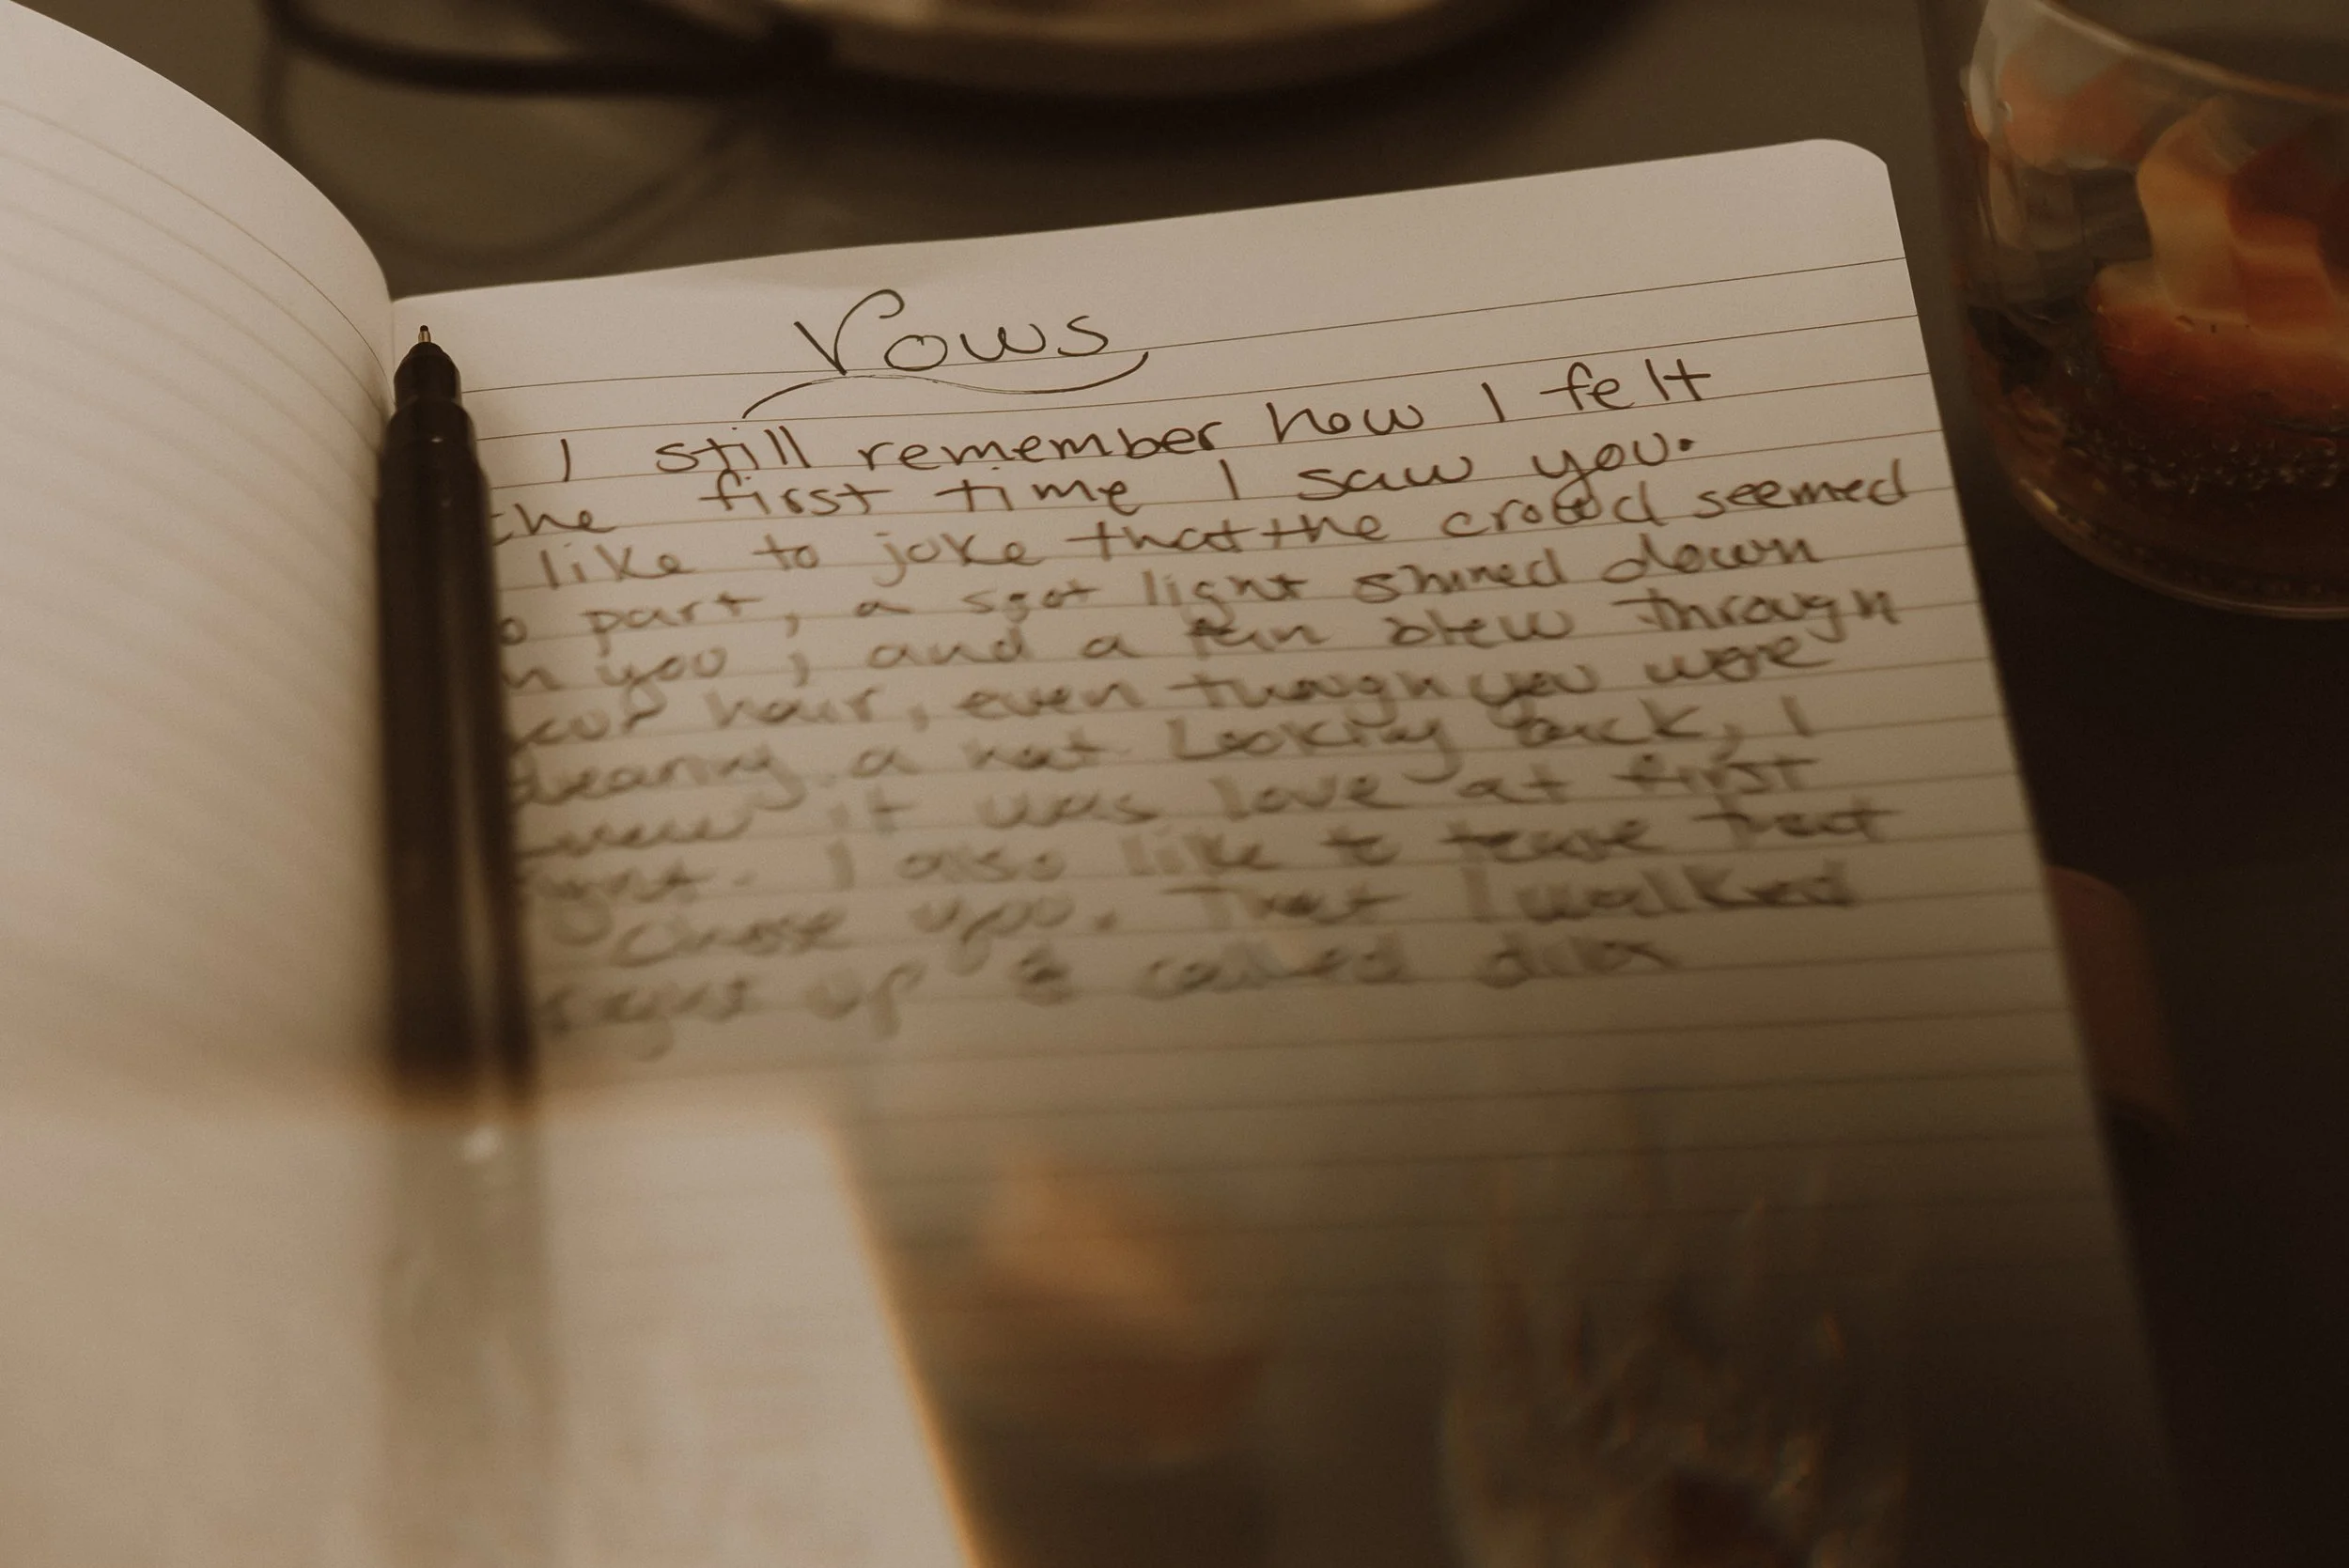 Vows
I still remember how I felt
the first time I saw you.
like to joke that the crowd seemed
part, a spot light shined down
you, and a fan blew through
hair, even though you were
wearing a hat. Looking back, I
knew it was love at first
I also like to tease that
chose you. That I walked
up & called dibs